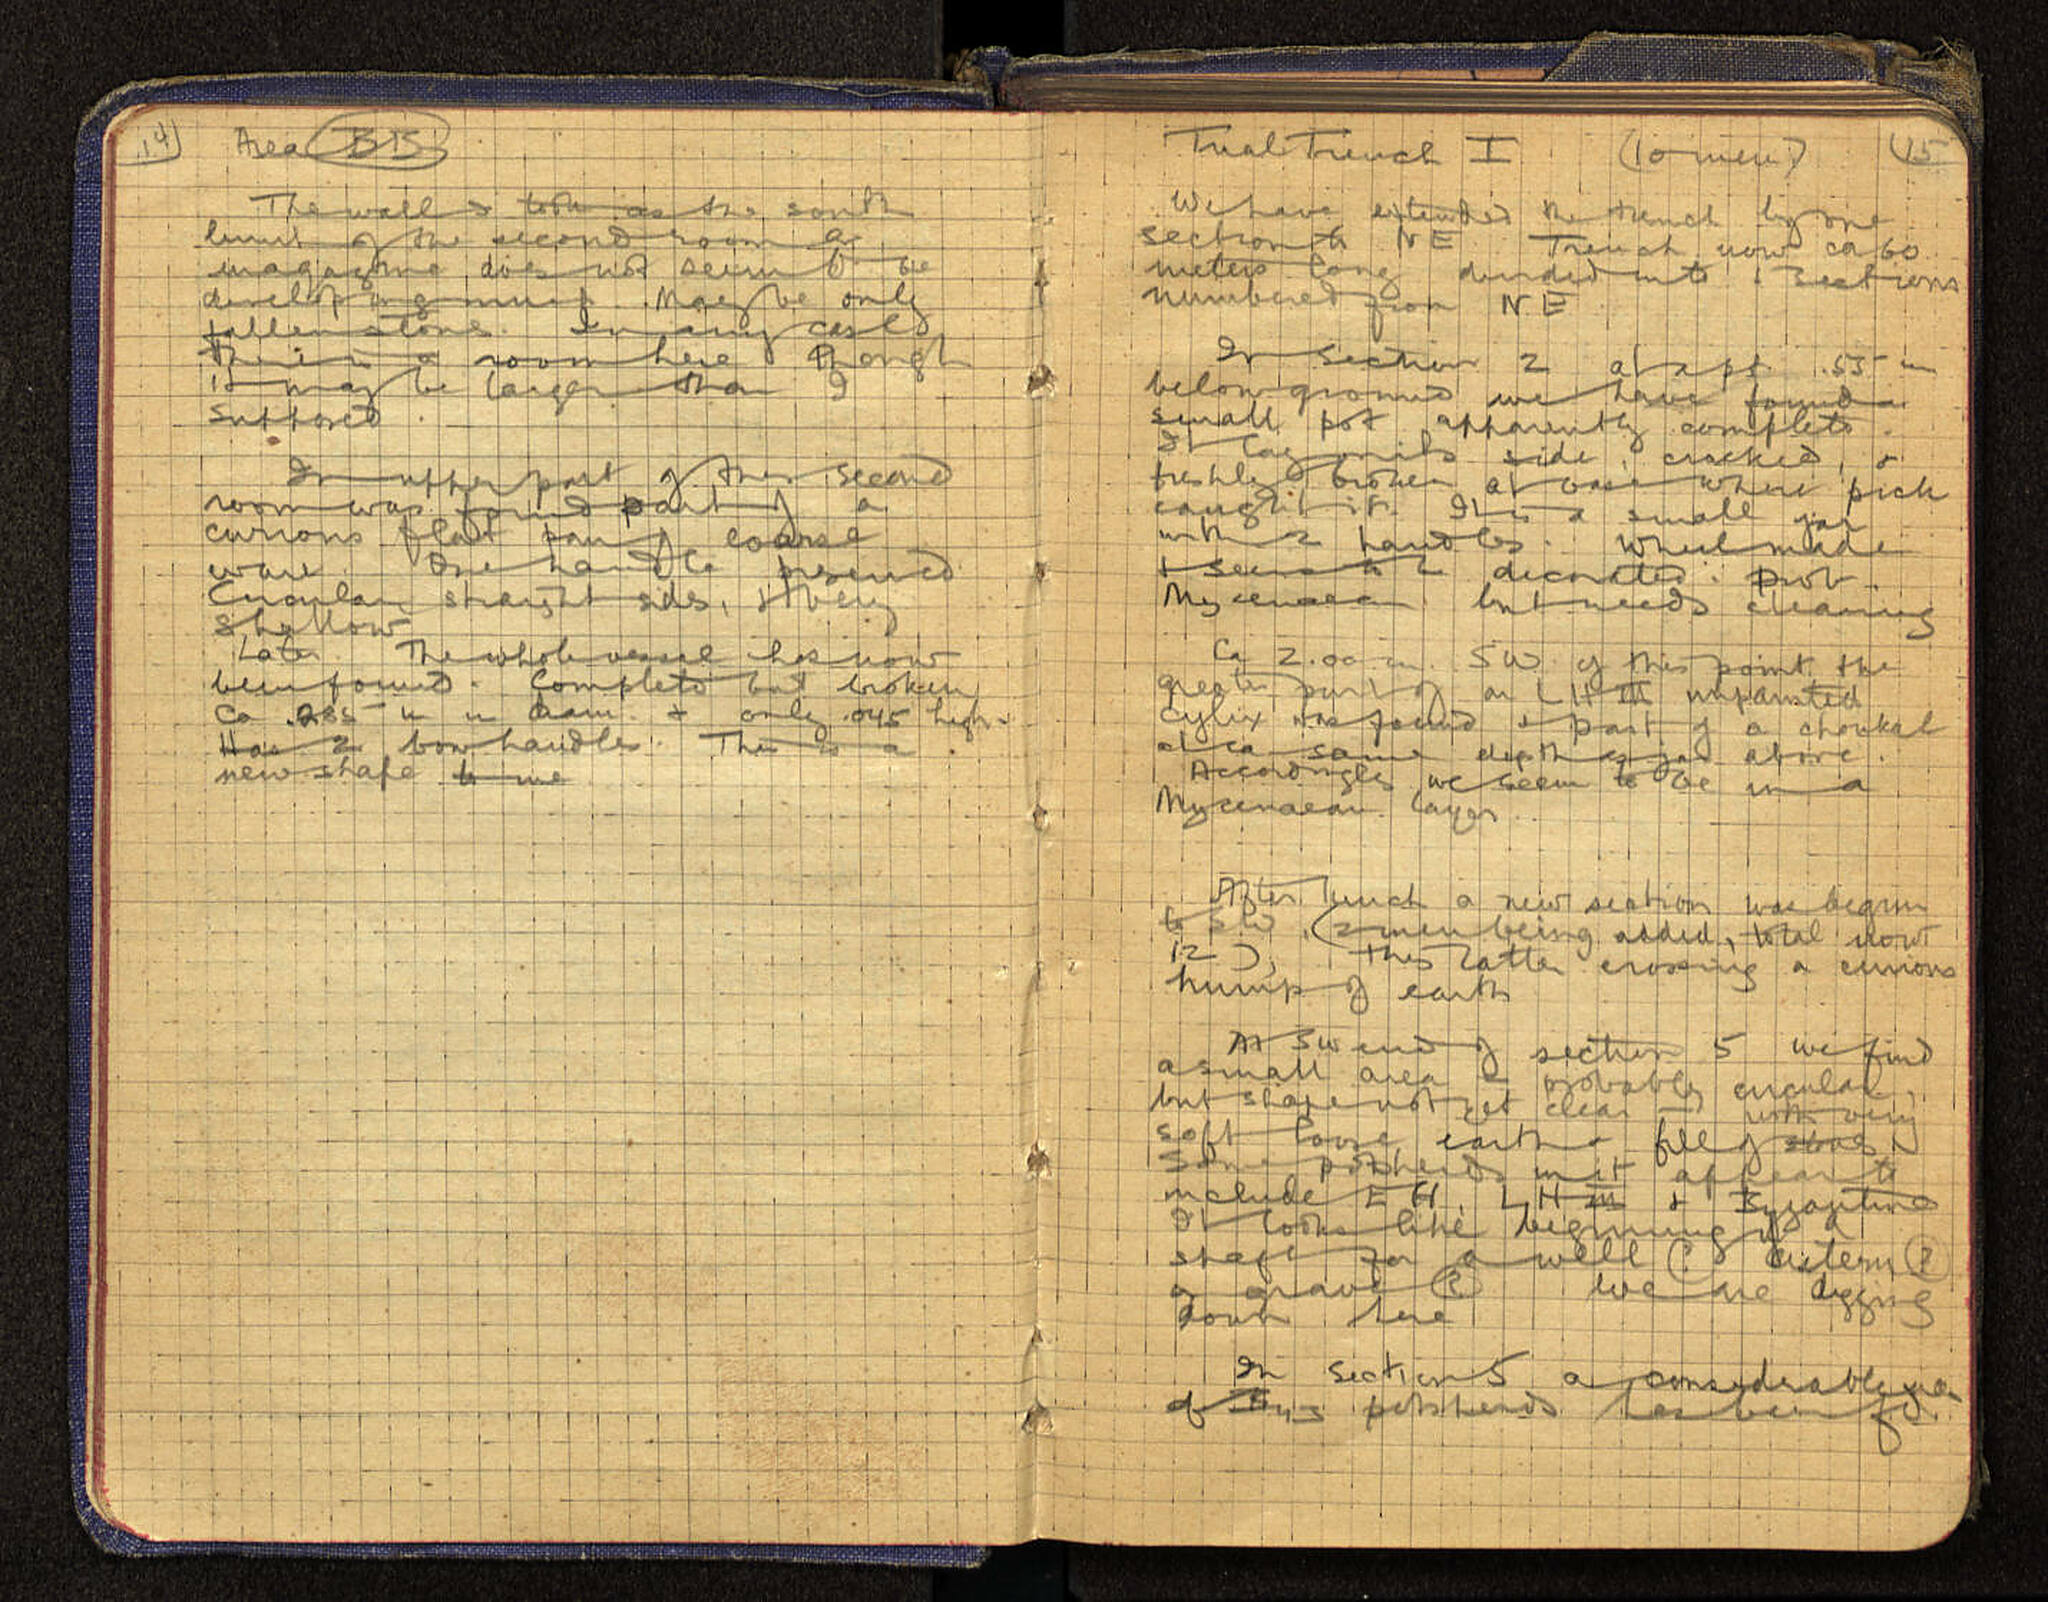 14
Area BB
The wall I took as the south
limit of the second room or
magazine does not seem to be
developing much. May be only
fallen stone. In any case
there is a room here though
it may be larger than I
supposed.
In upper part of this second
room was found part of a
curious flat pan of coarse
ware. One handle preserved
Circular, straight sides, & very
shallow
Later The whole vessel has now
been found. Complete but broken
Ca .285 m in diam. & only .045 high.
Has 2 bow handles. This is a
new shape to me
Trial Trench I (10 men) 15
We have extended the trench by one
section to NE. Trench now ca 60
meters long divided into sections
numbered from NE
In section 2 at apx .55 m
below ground we have found a
small pot apparently complete.
It lay on its side, cracked, &
freshly broken at base where pick
caught it. It is a small jar
with 2 handles. Wheelmade
& seems to be decorated. prob.
Mycenaean but needs cleaning
Ca 2.00 m. SW of this point the
greater part of an LH III unpainted
cylix was found & part of a
at ca same depth as jar above.
Accordingly we seem to be in a
Mycenaean layer
After lunch a new section was begun
to SW, (2 men being added, total now
12), this latter crossing a curious
hump of earth
At SW end of section 5 we find
a small area probably circular,
but shape not yet clear — with very
soft loose earth & full of stones
Some potsherds in it appear to
include EH, LH III & Byzantine
It looks like beginning of a
shaft for a well (? cistern (?)
or grave (?) We are digging
down here
In section 5 a considerable
of Byz potsherds has been